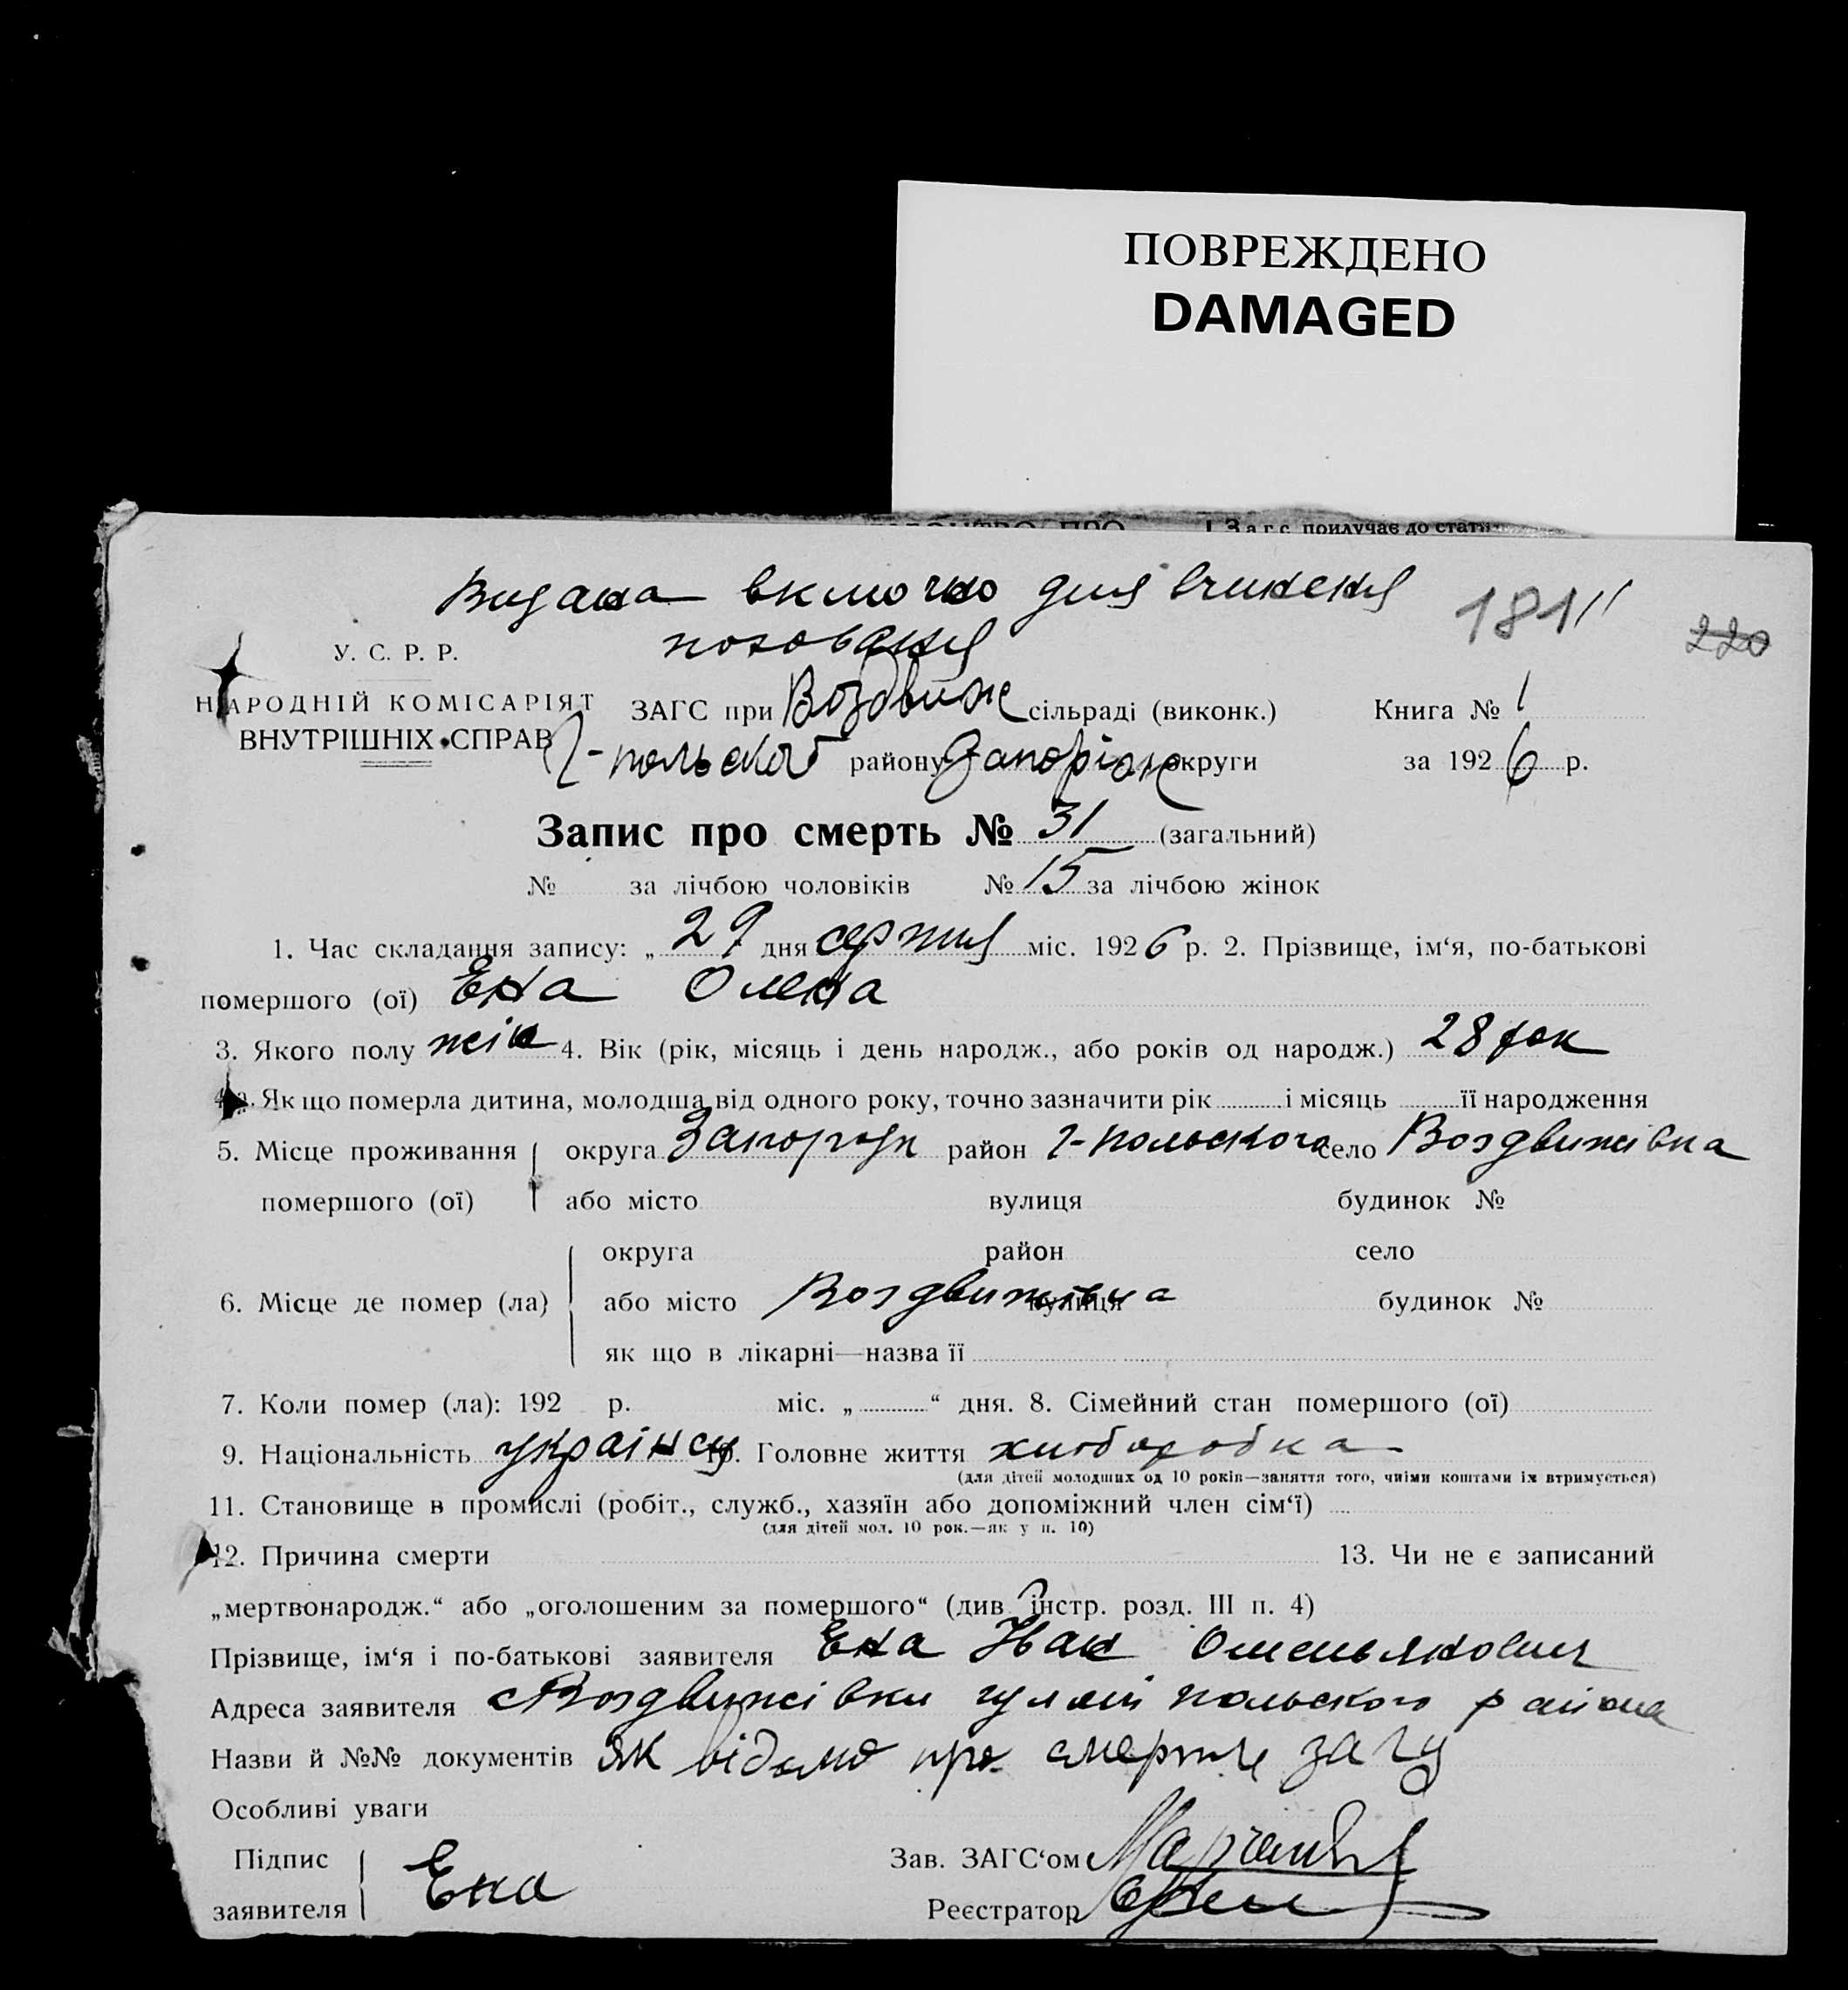 ПОВРЕЖДЕНО
DAMAGED
І Загс прилучає до стати
Видана включно для вчинення 181
220
поховання
У. С. Р. Р.
НАРОДНІЙ КОМІСАРІЯТ
ВНУТРІШНІХ СПРАВ
ЗАГС при Воздвиж сільраді (виконк.) Книга № 1
Г-польской району Запоріж округи за 1926 р.
Запис про смерть № 31 (загальний)
№ за лічбою чоловіків № 15 за лічбою жінок
1. Час складання запису: „29 дня серпня міс. 1926 р. 2. Прізвище, ім‘я, по-батькові
помершого (ої) Ена Олена
3. Якого полу жін 4. Вік (рік, місяць і день народж., або років од народж.) 28 рок
4а. Як що померла дитина, молодша від одного року, точно зазначити рік і місяць її народження
5. Місце проживання округа Запорозж район Г-польского село Воздвижівка
помершого (ої) або місто вулиця будинок №
округа район село
6. Місце де помер (ла) або місто Воздвижівка вулиця будинок №
як що в лікарні—назва її
7. Коли помер (ла): 192 р. міс. „ “ дня. 8. Сімейний стан помершого (ої)
9. Національність 10. Головне життя хліборобка
(для дітей молодших од 10 років—заняття того, чиїми коштами їх втримується)
11. Становище в промислі (робіт., служб., хазяїн або допоміжний член сім‘ї)
(для дітей мол. 10 рок.—як у п. 10)
12. Причина смерти 13. Чи не є записаний
„мертвонародж.“ або „оголошеним за помершого“ (див інстр. розд. III п. 4)
Прізвище, ім‘я і по-батькові заявителя Ена Іван Омельянович
Адреса заявителя с Воздвижівки гуляй польского района
Назви й №№ документів як відомо про смерть
Особливі уваги
Підпис
заявителя Ена
Зав. ЗАГС‘ом
Реєстратор